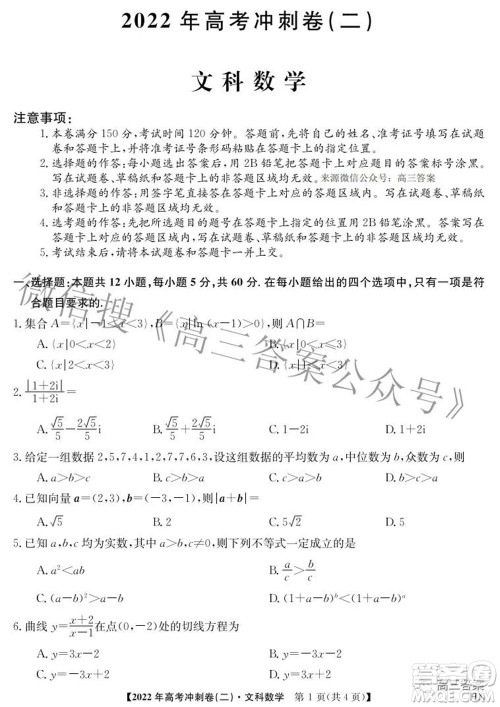 2022 年高考冲刺卷(二)
文科数学
注意事项:
1. 本卷满分 150 分,考试时间 120 分钟。答题前,先将自己的姓名、准考证号填写在试题
卷和答题卡上,并将准考证号条形码粘贴在答题卡上的指定位置。
2. 选择题的作答:每小题选出答案后,用 2B 铅笔把答题卡上对应题目的答案标号涂黑。
写在试题卷、草稿纸和答题卡上的非答题区域均无效。来源微信公众号:高三答案
3. 非选择题的作答:用签字笔直接答在答题卡上对应的答题区域内。写在试题卷、草稿纸
和答题卡上的非答题区域均无效。
4. 选考题的作答:先把所选题目的题号在答题卡上指定的位置用 2B 铅笔涂黑。答案写在
答题卡上对应的答题区域内,写在试题卷、草稿纸和答题卡上的非答题区域均无效。
5. 考试结束后,请将本试题卷和答题卡一并上交。
一、选择题:本题共 12 小题,每小题 5 分,共 60 分. 在每小题给出的四个选项中,只有一项是符
合题目要求的.
1. 集合 A={x|-1<x<3},B={x|ln(x-1)>0},则 A∩B=
A. {x|0<x<2} B. {x|0<x<3} C. {x|2<x<3} D. {x|1<x<2}
2. |1+2i|/(1+2i)=
A. √5/5-2√5/5 i B. √5/5+2√5/5 i C. 1-2i D. 1+2i
3. 给定一组数据 2,5,7,4,1,2,7,7,6,3,设这组数据的平均数为 a,中位数为 b,众数为 c,则
A. a>b>c B. c>b>a C. c>a>b D. b>c>a
4. 已知向量 a=(2,3),b=(-3,-3),则|a+b|=
A. √5 B. 2 C. 5√2 D. 5
5. 已知 a,b,c 均为实数,其中 a>b,c≠0,则下列不等式一定成立的是
A. a²<ab B. a/c>b/c
C. (a-b)²>a-b D. (1+a-b)ᵇ<(1+a-b)ᵃ
6. 曲线 y=(x+2)/(x-1) 在点(0,-2)处的切线方程为
A. y=3x-2 B. y=3x+2
C. y=-3x-2 D. y=-3x+2
【2022 年高考冲刺卷(二)·文科数学 第 1 页(共 4 页)】
微信搜《高三答案公众号》
高三答案